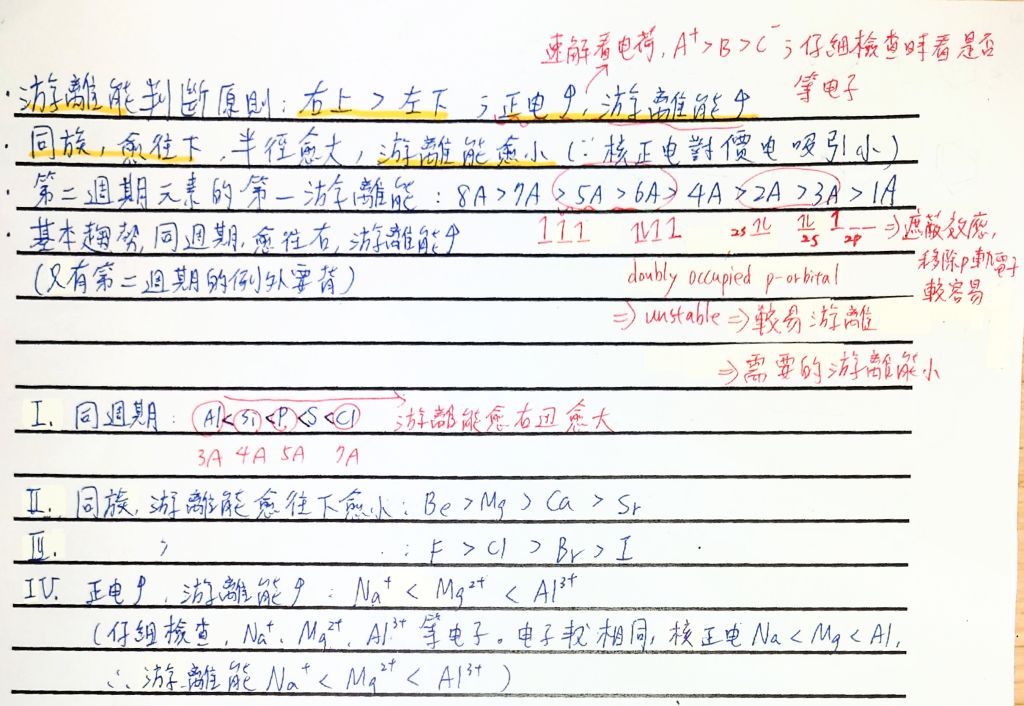 速解看电荷, A⁺>B>C⁻；仔細檢查時看是否
等电子
· 游離能判斷原則：右上 > 左下；正电↑, 游離能↑
· 同族, 愈往下, 半徑愈大, 游離能愈小 (∵核正电對價电吸引小)
· 第二週期元素的第一游離能：8A>7A>5A>6A>4A>2A>3A>1A
· 基本趨勢, 同週期, 愈往右, 游離能↑
1 1 1 1L 1 1 2s 1L 1L 2s 1 2p ⇒遮蔽效應,
移除p軌電子
較容易
(只有第二週期的例外要背)
doubly occupied p-orbital
⇒ unstable ⇒ 較易游離
⇒ 需要的游離能小
I. 同週期：Al<Si<P<S<Cl 游離能愈右邊愈大
3A 4A 5A 7A
II. 同族, 游離能愈往下愈小：Be>Mg>Ca>Sr
III. 〃 ：F>Cl>Br>I
IV. 正电↑, 游離能↑：Na⁺<Mg²⁺<Al³⁺
(仔細檢查, Na⁺、Mg²⁺、Al³⁺等电子。电子數相同, 核正电Na<Mg<Al,
∴游離能Na⁺<Mg²⁺<Al³⁺)